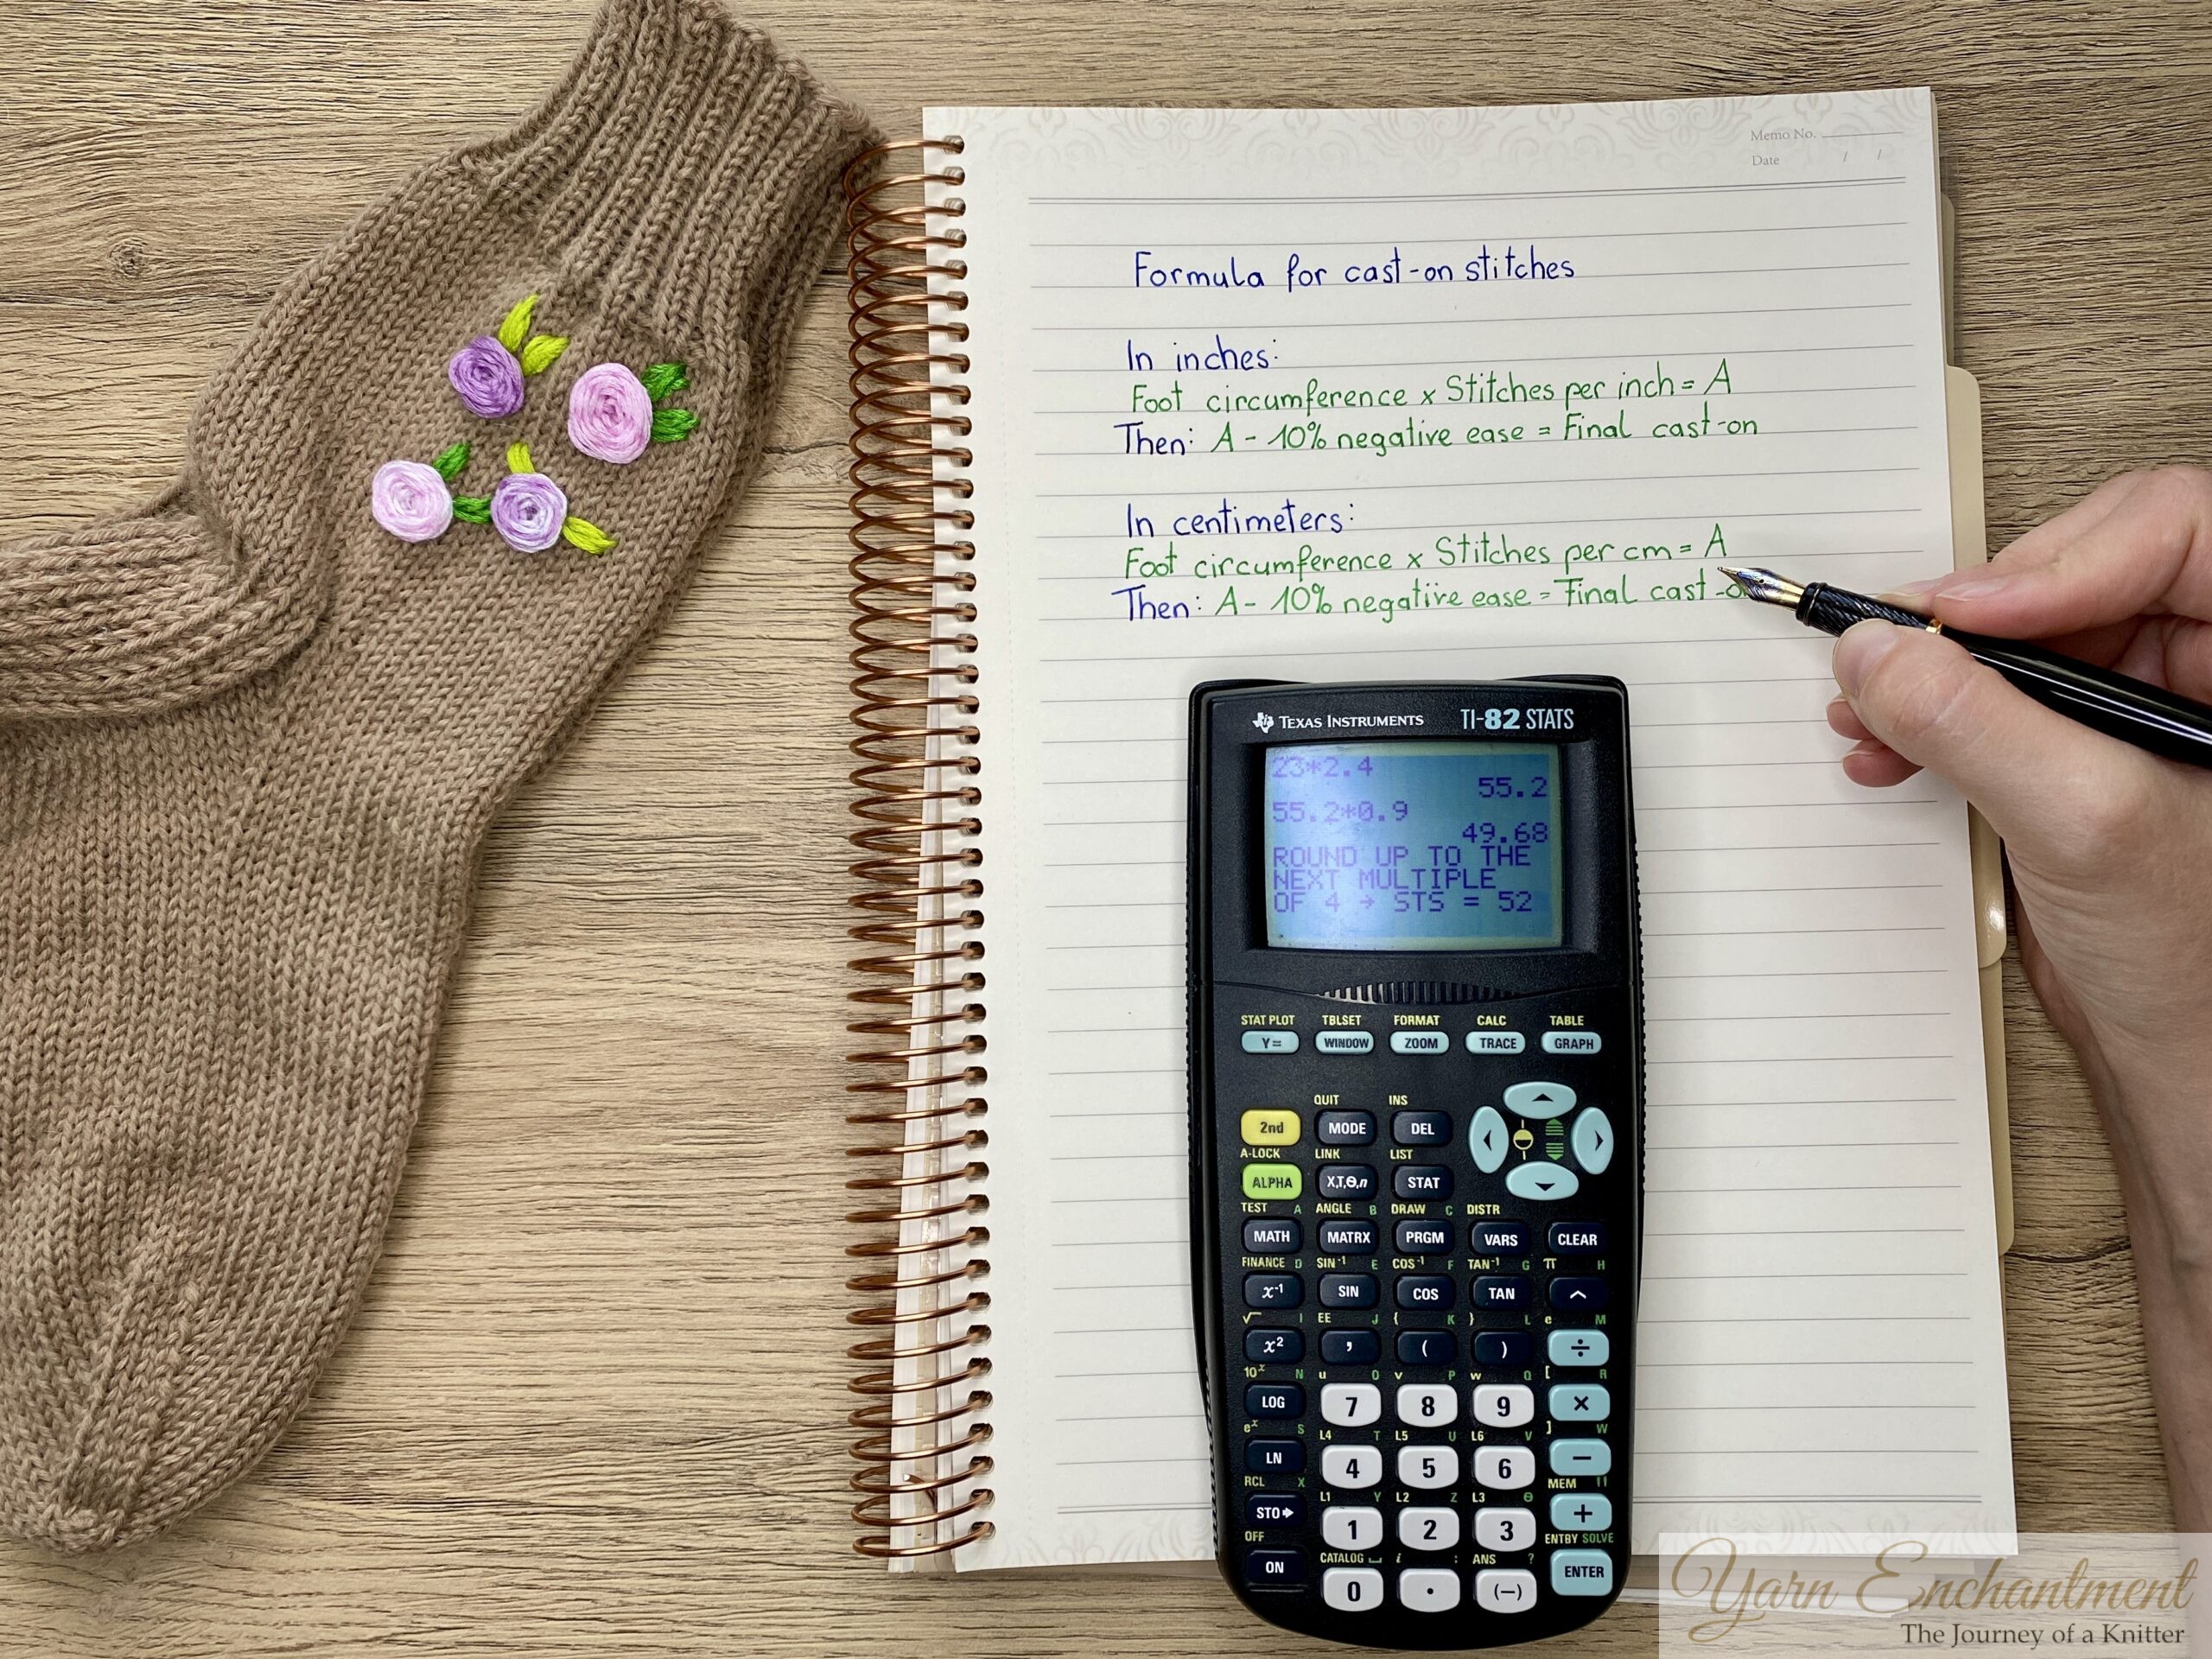 Memo No.
Date / /
Formula for cast-on stitches
In inches:
Foot circumference x Stitches per inch = A
Then: A - 10% negative ease = Final cast-on
In centimeters:
Foot circumference x Stitches per cm = A
Then: A - 10% negative ease = Final cast-o
TEXAS INSTRUMENTS TI-82 STATS
23*2.4
55.2
55.2*0.9
49.68
ROUND UP TO THE
NEXT MULTIPLE
OF 4 → STS = 52
STAT PLOT TBLSET FORMAT CALC TABLE
Y= WINDOW ZOOM TRACE GRAPH
QUIT INS
2nd MODE DEL
A-LOCK LINK LIST
ALPHA X,T,Θ,n STAT
TEST A ANGLE B DRAW C DISTR
MATH MATRX PRGM VARS CLEAR
FINANCE D SIN⁻¹ E COS⁻¹ F TAN⁻¹ G π H
x⁻¹ SIN COS TAN ^
√ I EE J { K } L e M
x² , ( ) ÷
10ˣ N u O v P w Q [ R
LOG 7 8 9 ×
eˣ S L4 T L5 U L6 V ] W
LN 4 5 6 −
RCL X L1 Y L2 Z L3 θ MEM "
STO➔ 1 2 3 +
OFF CATALOG ⎵ i : ANS ? ENTRY SOLVE
ON 0 . (−) ENTER
Yarn Enchantment
The Journey of a Knitter